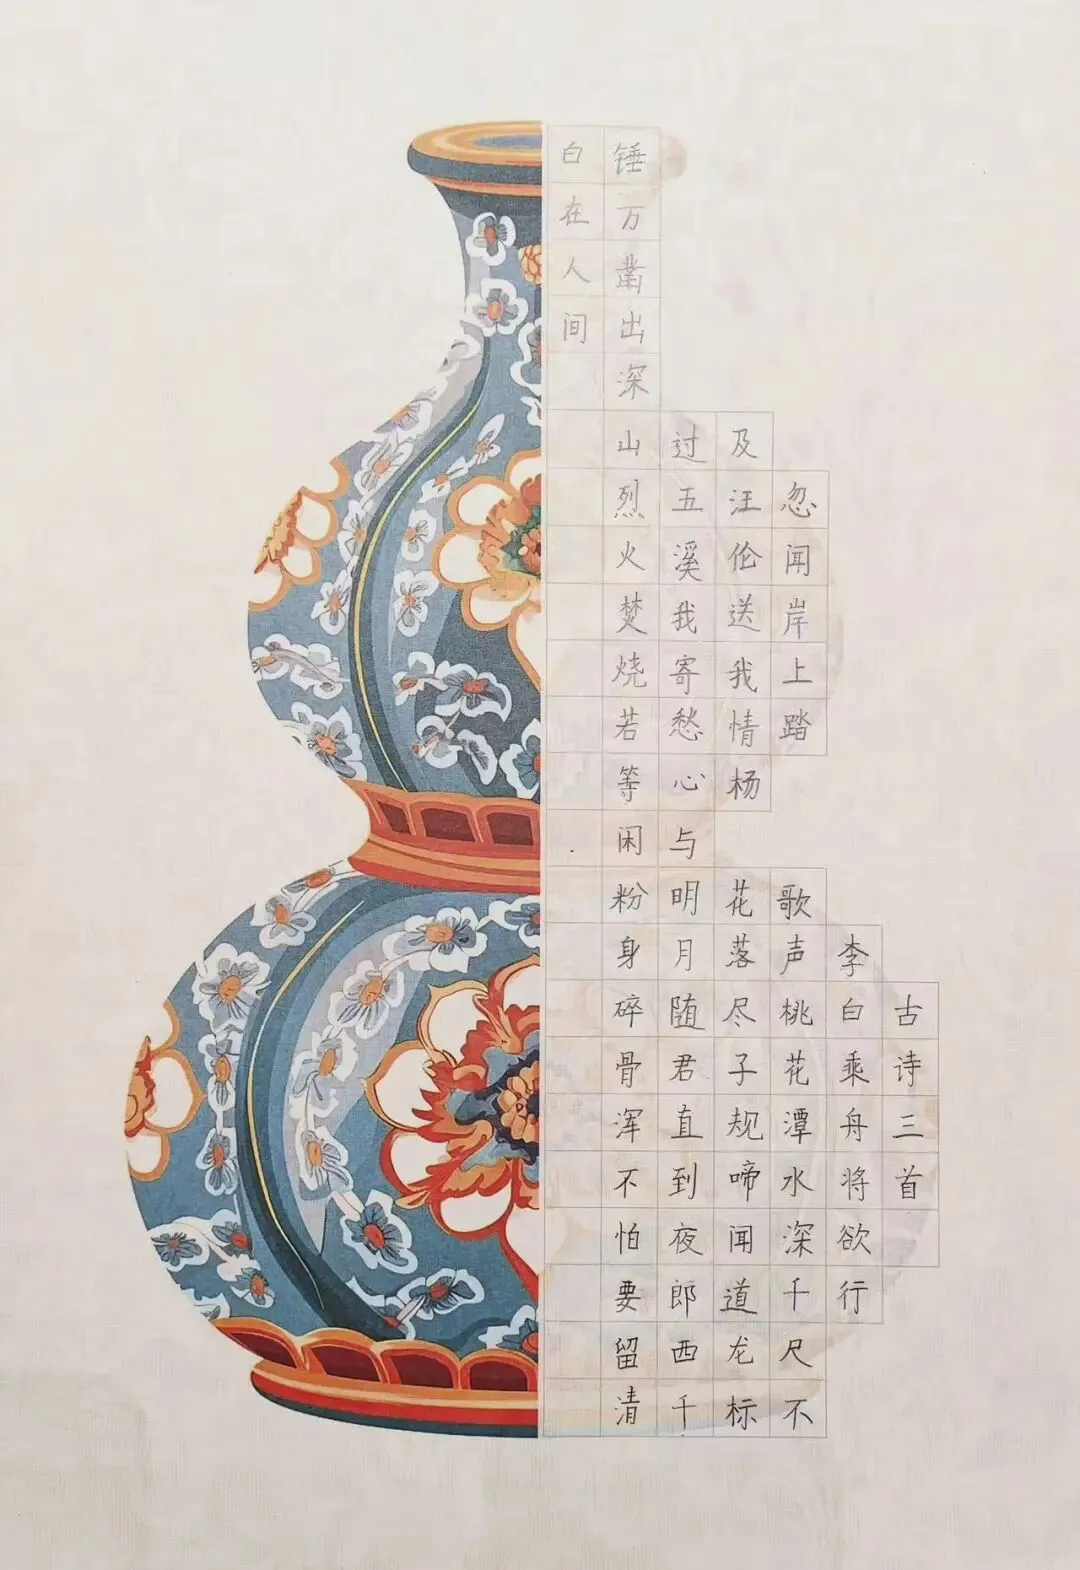 古诗三首
李白乘舟将欲行
忽闻岸上踏歌声桃花潭水深千尺不
及汪伦送我情杨花落尽子规啼闻道龙标
过五溪我寄愁心与明月随君直到夜郎西千
锤万凿出深山烈火焚烧若等闲粉身碎骨浑不怕要留清
白在人间